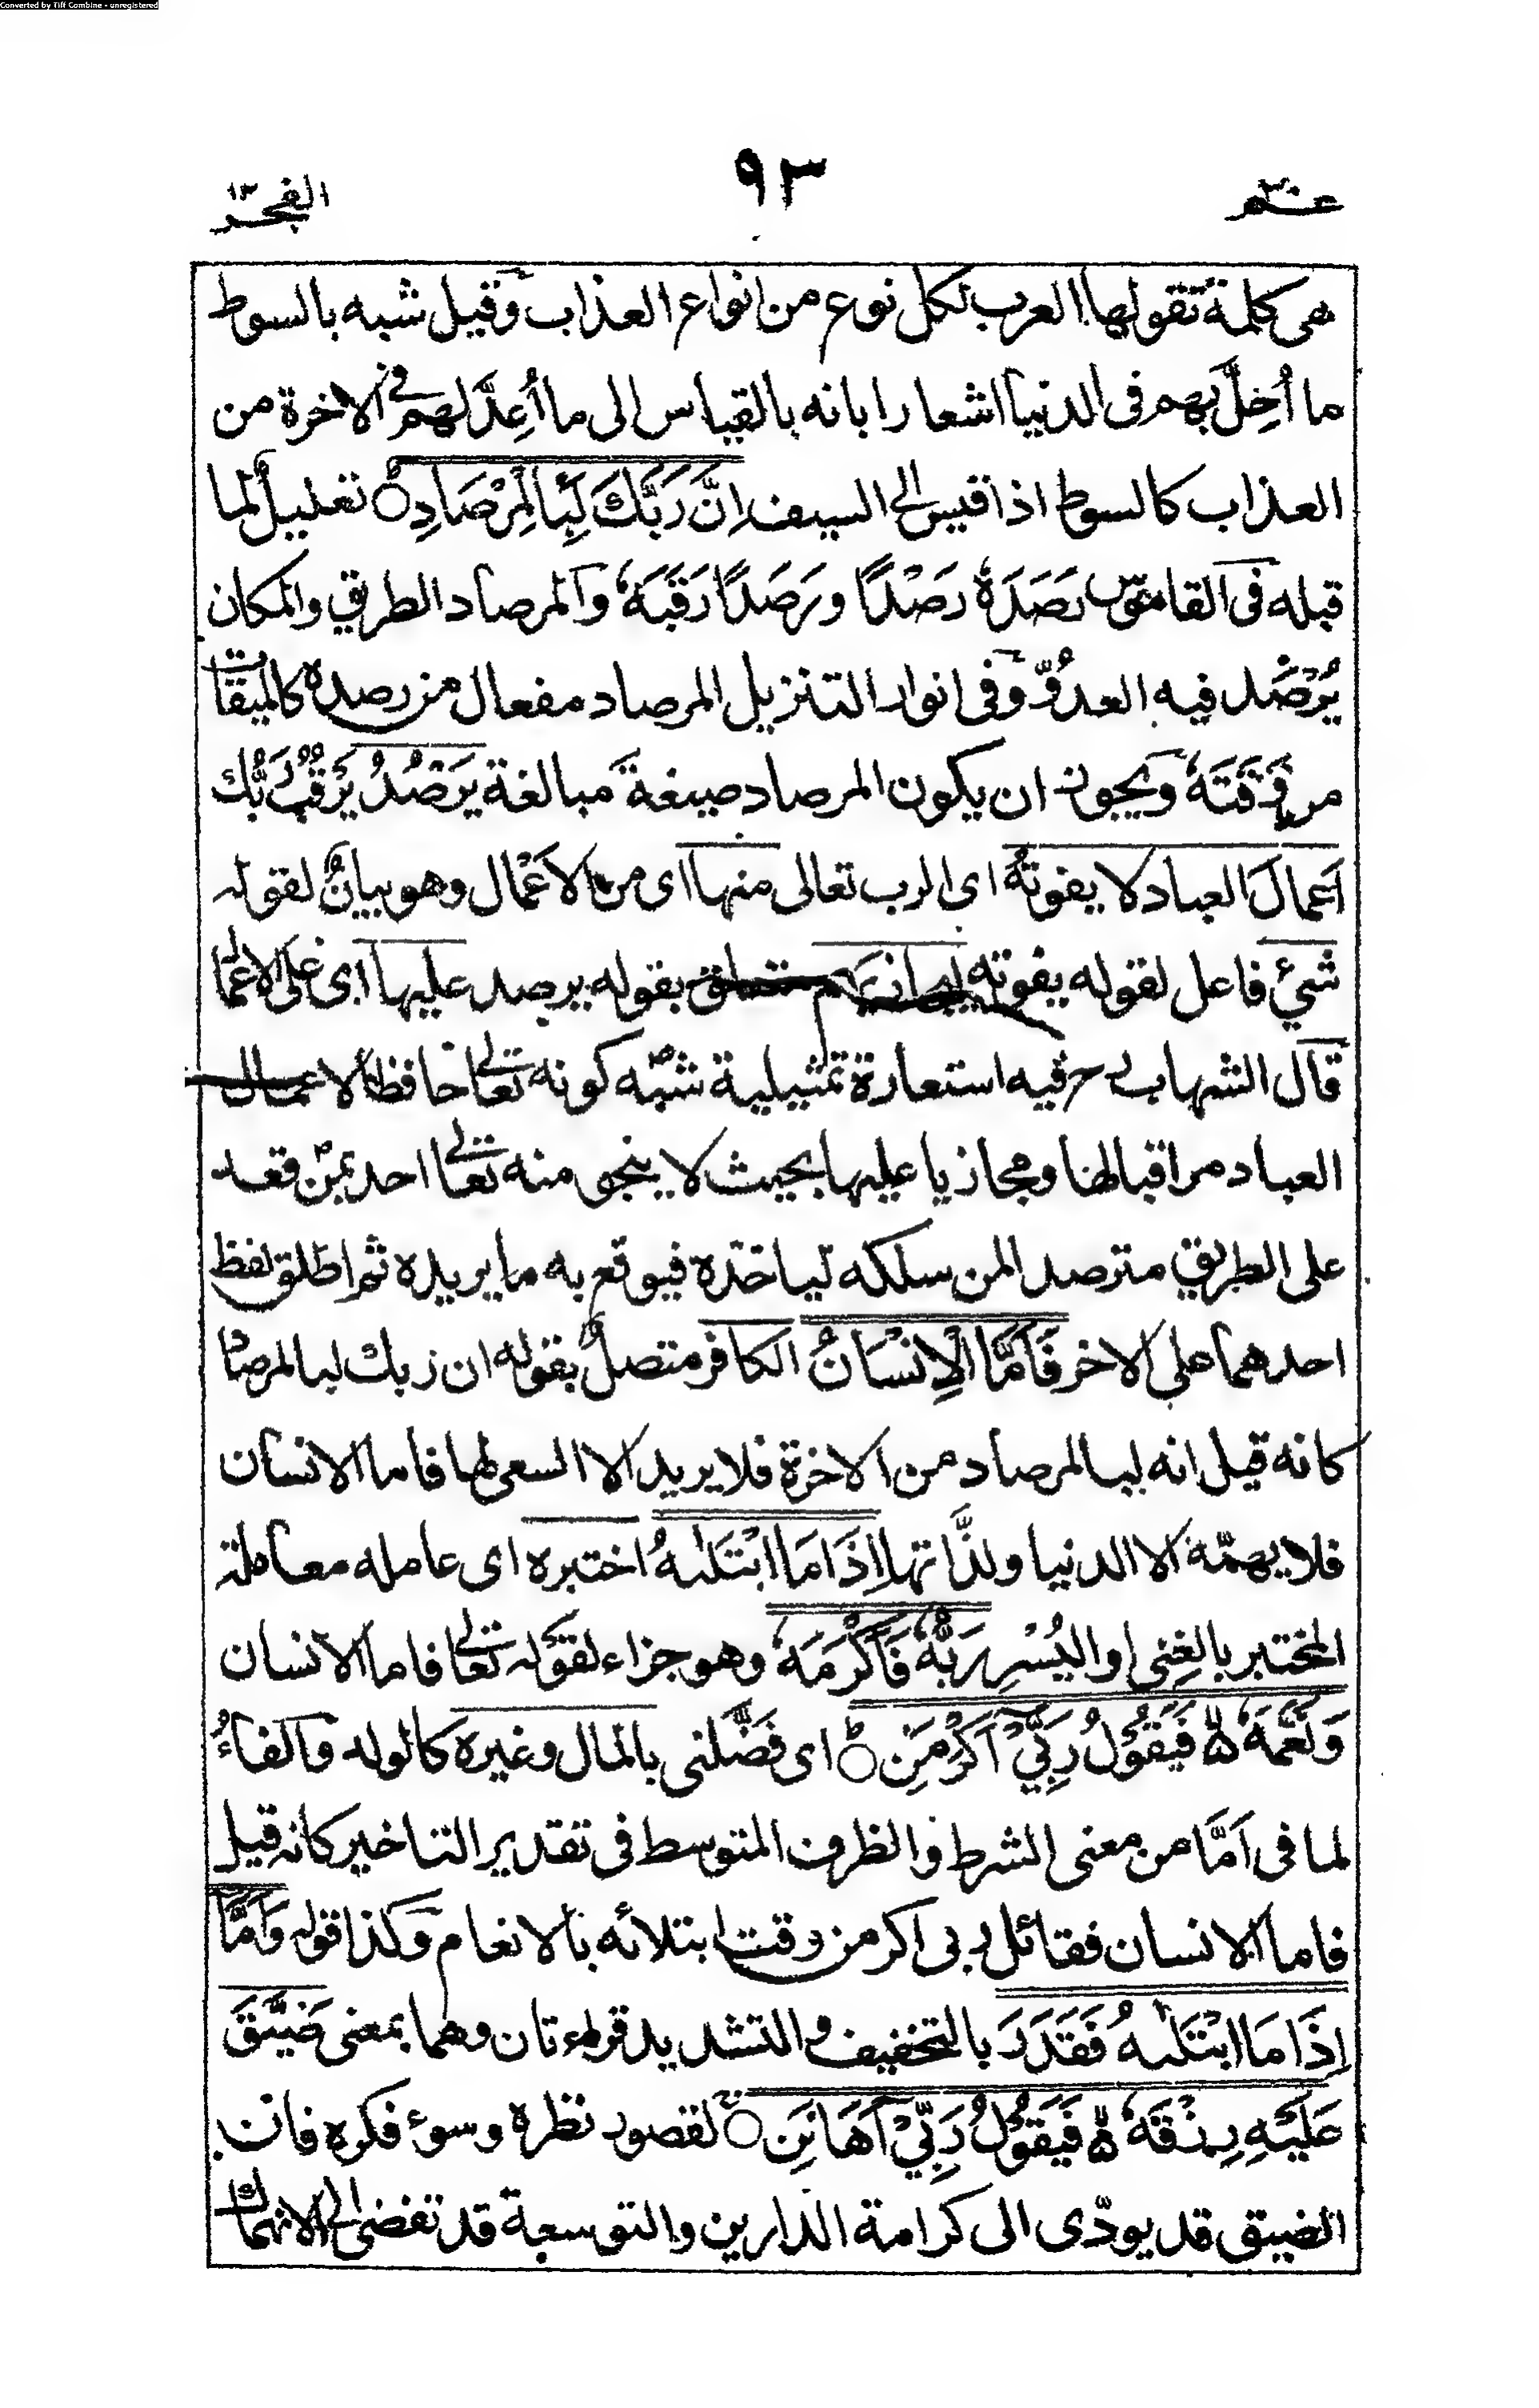 Converted by Tiff Combine - unregistered
عـم ٣٠
٩٣
الفجر
هى كلمة تقولها العرب لكل نوع من انواع العذاب وقيل شبه بالسوط
ما أُحِلَّ بهم فى الدنيا اشعارا بانه بالقياس الى ما أُعِدَّ لهم فى الاخرة من
العذاب كالسوط اذا قيس الى السيف اِنَّ رَبَّكَ لَبِالْمِرْصَادِ تعليلٌ لما
قبله فى القاموس رَصَدَهٗ رَصْدًا ورَصَدًا رَقَبَهٗ والمرصاد الطريق والمكان
يُرْصَد فيه العدُوّ وفى انوار التنزيل المرصاد مفعال من رصده كالميقات
من وَقَتَهٗ ويجوز ان يكون المرصاد صيغة مبالغة يَرْصُدُ يَرْقُبُ رَبُّك
اَعمالَ العباد لا يفوتُه اى الرب تعالى منها اى من الاَعْمَال وهو بيانٌ لقوله
شَىْءٌ فاعل لقوله يفوته بقوله يرصد عليها اى على الاعمال
قال الشهاب رح فيه استعارة تمثيلية شبّه كونه تعالى حافظا لاعمال
العباد مراقبا لها ومجازيا عليها بحيث لا ينجو منه تعالى احد بمن قعد
على الطريق مترصدا لمن سلكه لياخذه فيوقع به ما يريده ثم اطلق لفظ
احدهما على الاخر فَاَمَّا الْاِنْسَانُ الكافر متصلٌ بقوله ان ربك لبالمرصاد
كانه قيل انه لبالمرصاد من الاخرة فلا يريد الا السعى لها فاما الانسان
فلا يهمّه الا الدنيا ولذَّاتها اِذَا مَا ابْتَلٰىهُ اختبره اى عامله معاملة
المختبر بالغِنى واليُسْرِ رَبُّهٗ فَاَكْرَمَهٗ وهو جزاء لقوله تعالى فاما الانسان
وَنَعَّمَهٗ فَيَقُوْلُ رَبِّىْ اَكْرَمَنِ اى فَضَّلنى بالمال وغيره كالولد والفاءُ
لما فى اَمَّا من معنى الشرط والظرف المتوسط فى تقدير التاخير كانه قيل
فاما الانسان فقائل ربى اكرمن وقت ابتلائه بالانعام وكذا قوله وَاَمَّا
اِذَا مَا ابْتَلٰىهُ فَقَدَرَ بالتخفيف والتشديد قراءتان وهما بمعنى ضَيَّقَ
عَلَيْهِ رِزْقَهٗ فَيَقُوْلُ رَبِّىْ اَهَانَنِ لقصور نظره وسوء فكره فان
الضيق قد يودّى الى كرامة الدارين والتوسعة قد تفضى الى الانهماك